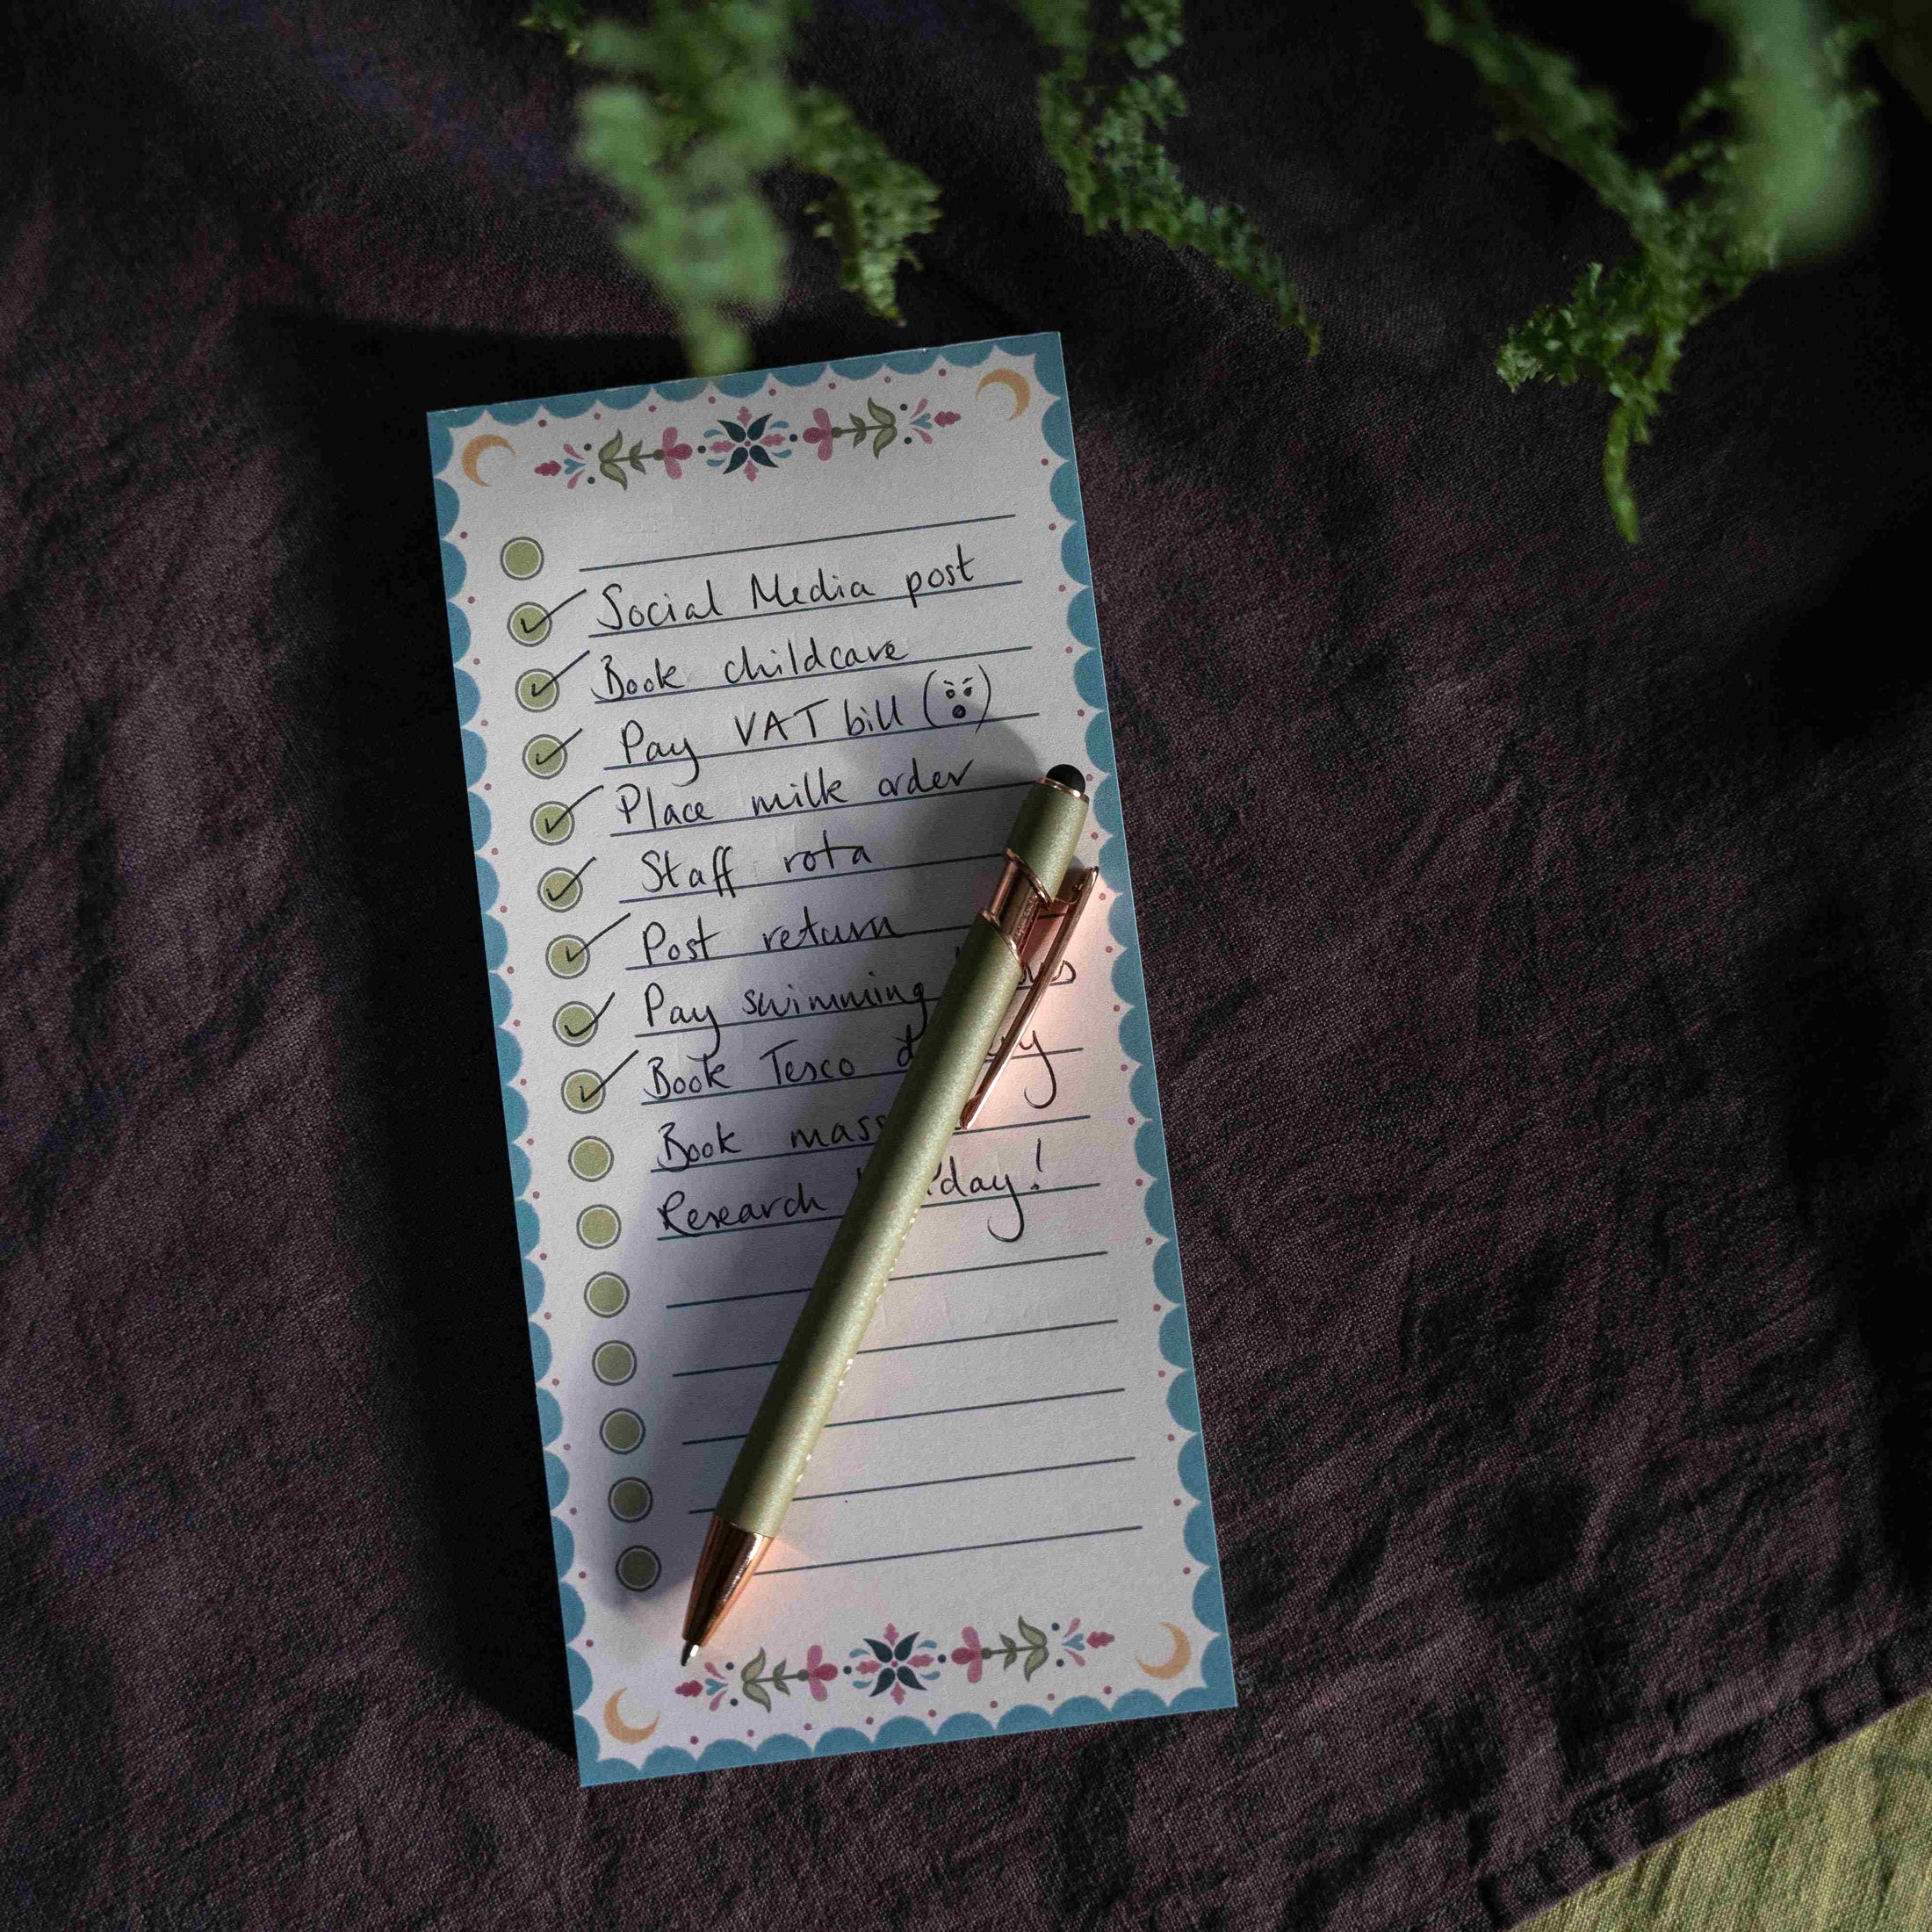 Social Media post
Book childcare
Pay VAT bill
Place milk order
Staff rota
Post return
Pay swimming
Book Tesco
Book
Research